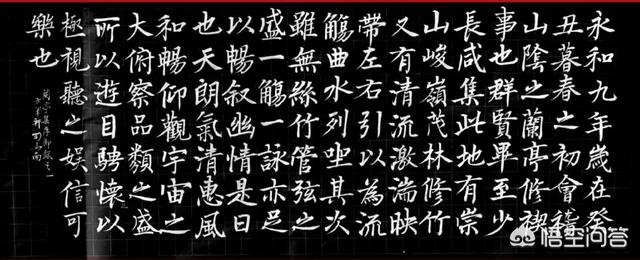 永和九年歲在癸
丑暮春之初會稽
山陰之蘭亭修禊
事也群賢畢至少
長咸集此地有崇
山峻嶺茂林修竹
又有清流激湍映
帶左右引以為流
觴曲水列坐其次
雖無絲竹管弦之
盛一觴一詠亦足
以暢叙幽情是日
也天朗氣清惠風
和暢仰觀宇宙之
大俯察品類之盛
所以遊目騁懷以
極視聽之娛信可
樂也
蘭亭集序節錄
悟空问答